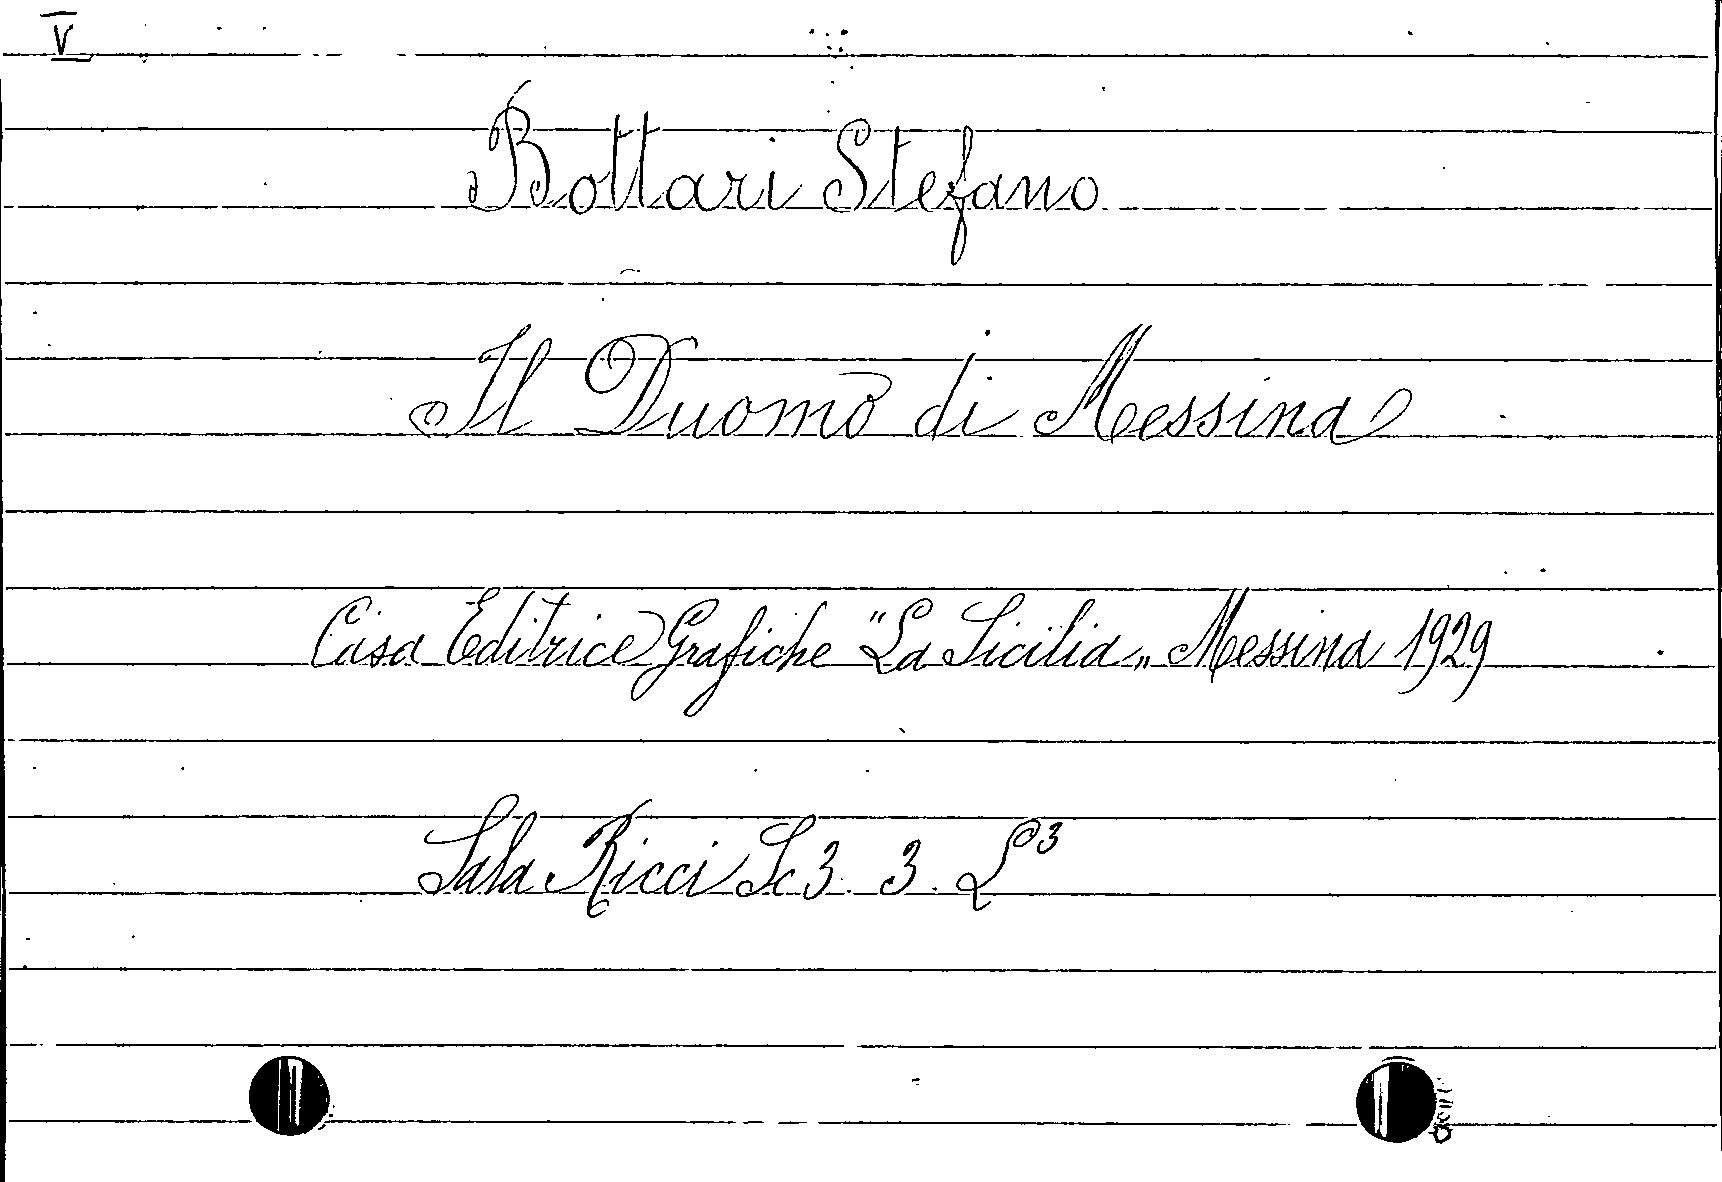 V
Bottari Stefano
Il Duomo di Messina
Casa Editrice Grafiche "La Sicilia„ Messina 1929
Sala Ricci Sc 3. 3. L³